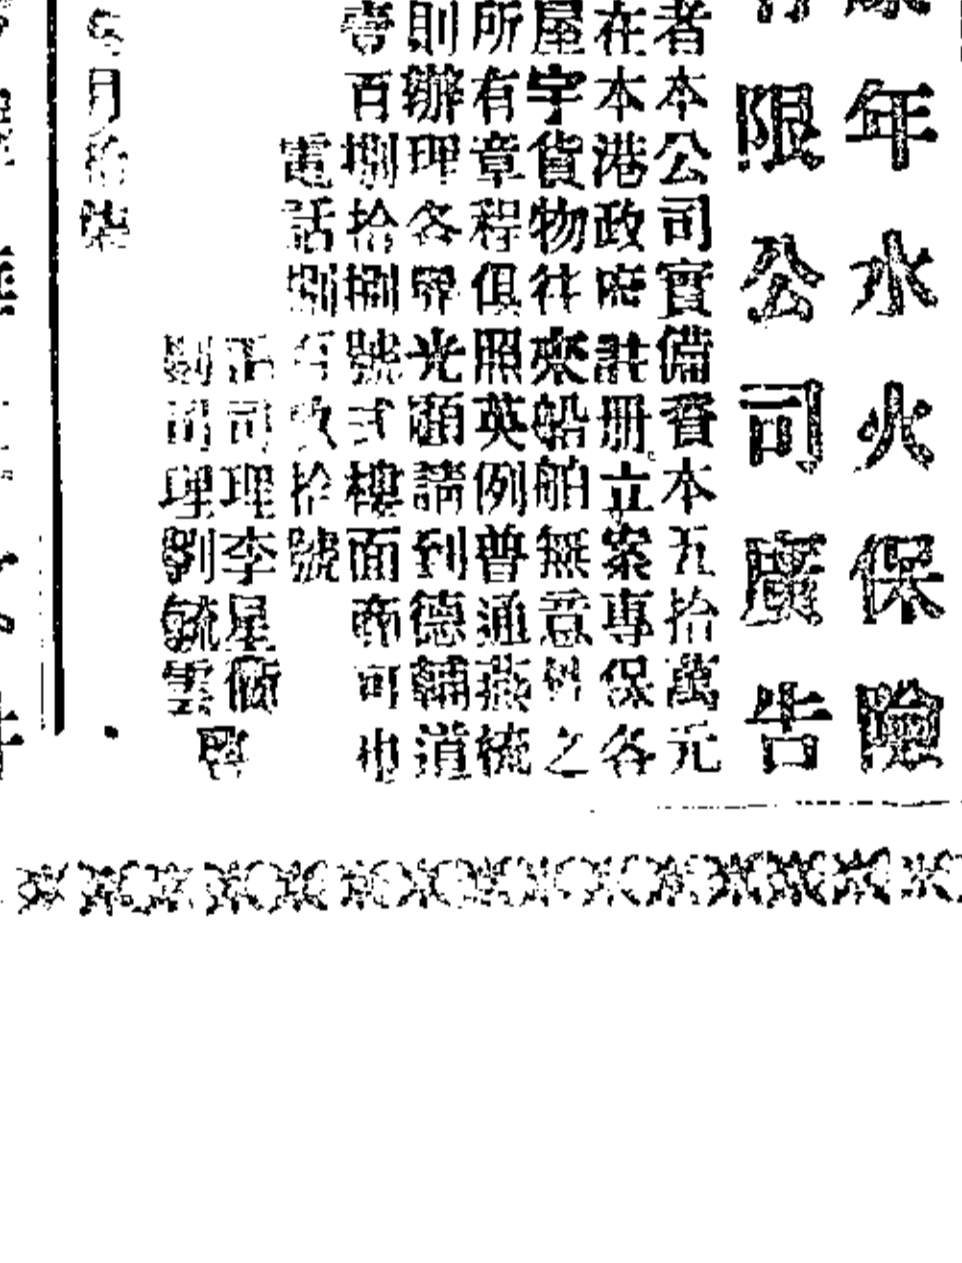 年水火保險
限公司廣告
者本公司實備資本五拾萬元
在本港政府註册立案專保各
屋宇貨物往來船舶無意外之
所有章程俱照英例普通燕梳
則辦理各界光顧請到德輔道
壹百捌拾捌號弍樓面商可也
電話捌百玖拾號
正司理李星衢
副司理劉毓雲
啓
月拾柒